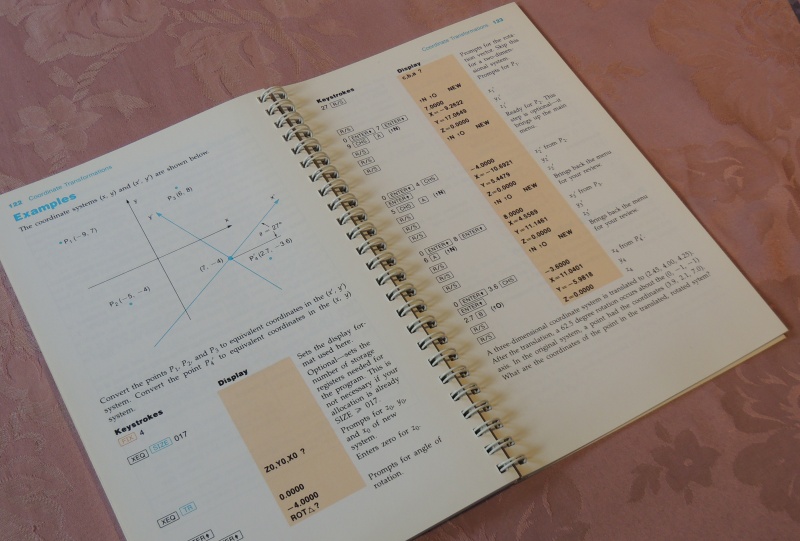 122 Coordinate Transformations
Examples
The coordinate systems (x, y) and (x′, y′) are shown below:
P₃ (6, 8)
y
y′
x′
x
P₁ (−9, 7)
27°
(7, −4)
P₄′ (2.7, −3.6)
P₂ (−5, −4)
Convert the points P₁, P₂, and P₃ to equivalent coordinates in the (x′, y′)
system. Convert the point P₄′ to equivalent coordinates in the (x, y)
system.
Keystrokes
Display
FIX 4
Sets the display for-
mat used here.
XEQ SIZE 017
Optional—sets the
number of storage
registers needed for
the program. This is
not necessary if your
allocation is already
SIZE ≥ 017.
XEQ TR
Z0,Y0,X0 ?
Prompts for z₀, y₀,
and x₀ of new
system.
0.0000
Enters zero for z₀.
−4.0000
ROT△?
Prompts for angle of
rotation.
Coordinate Transformations 123
Keystrokes
Display
27 R/S
Prompts for the rota-
tion vector. Skip this
for a two-dimen-
sional system.
Prompts for P₁.
R/S
↑N ↑O NEW
0 ENTER♦ 7 ENTER♦
7.0000
9 CHS A (↑N)
X=−9.2622
x₁′
R/S
Y=17.0649
y₁′
R/S
Z=0.0000
z₁′
R/S
↑N ↑O NEW
Ready for P₂. This
step is optional—it
brings up the main
menu.
0 ENTER♦ 4 CHS
ENTER♦
−4.0000
5 CHS A (↑N)
X=−10.6921
x₂′ from P₂
R/S
Y=5.4479
y₂′
R/S
Z=0.0000
z₂′
R/S
↑N ↑O NEW
Brings back the menu
for your review.
0 ENTER♦ 8 ENTER♦
8.0000
6 A (↑N)
X=4.5569
x₃′ from P₃
R/S
Y=11.1461
y₃′
R/S
Z=0.0000
z₃′
R/S
↑N ↑O NEW
Brings back the menu
for your review.
0 ENTER♦ 3.6 CHS
ENTER♦
−3.6000
2.7 B (↑O)
X=11.0401
x₄ from P₄′
R/S
Y=−5.9818
y₄
R/S
Z=0.0000
z₄
A three-dimensional coordinate system is translated to (2.45, 4.00, 4.25).
After the translation, a 62.5 degree rotation occurs about the (0, −1, −1)
axis. In the original system, a point had the coordinates (3.9, 2.1, 7.0).
What are the coordinates of the point in the translated, rotated system?